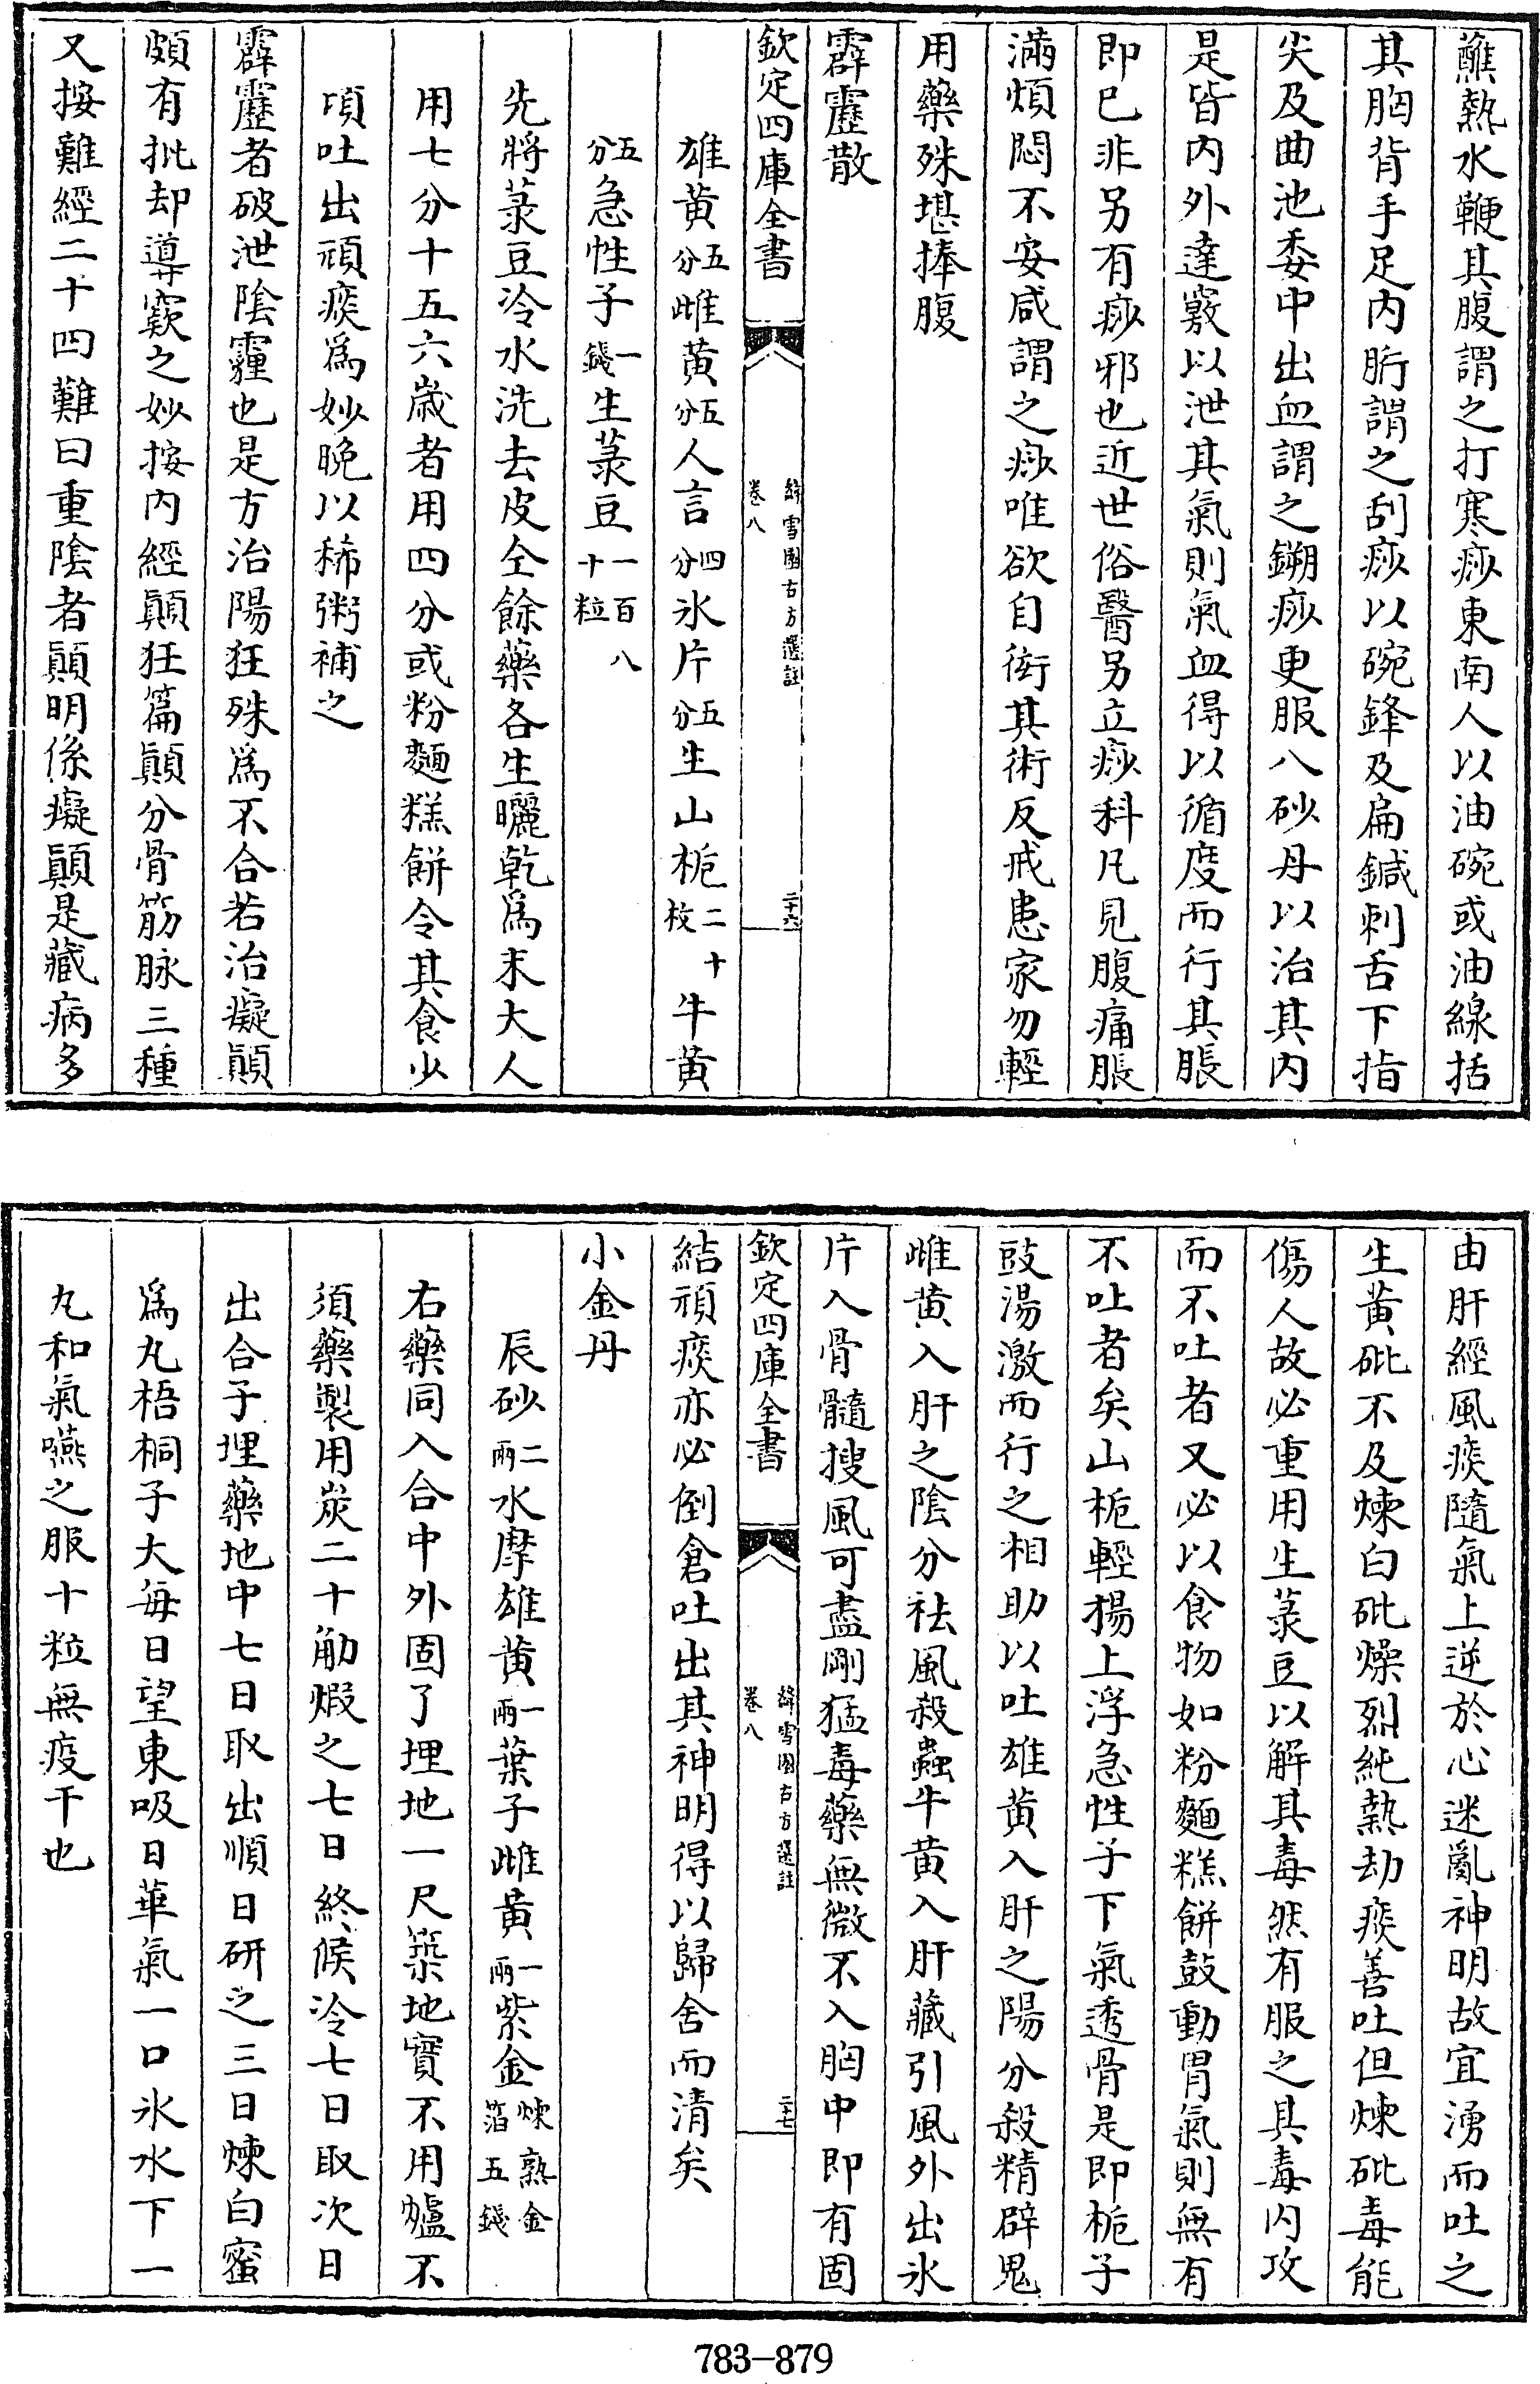 蘸熱水鞭其腹謂之打寒痧東南人以油碗或油線括
其胸背手足内䏡謂之刮痧以碗鋒及扁鍼刺舌下指
尖及曲池委中出血謂之鎙痧更服八砂丹以治其内
是皆内外達竅以泄其氣則氣血得以循度而行其脹
即已非另有痧邪也近世俗醫另立痧科凡見腹痛脹
滿煩悶不安咸謂之痧唯欲自衒其術反戒患家勿輕
用藥殊堪捧腹
霹靂散
欽定四庫全書
絳雪園古方選註
卷八
二十六
雄黄五分雌黄五分人言四分氷片五分生山栀二十枚牛黄
五分急性子一錢生菉豆一百八十粒
先將菉豆冷水洗去皮仝餘藥各生曬乾爲末大人
用七分十五六歲者用四分或粉麵糕餅令其食少
頃吐出頑痰爲妙晚以稀粥補之
霹靂者破泄陰霾也是方治陽狂殊爲不合若治癡顛
頗有批却導窾之妙按内經顛狂篇顛分骨筋脉三種
又按難經二十四難曰重陰者顛明係癡顛是藏病多
由肝經風痰隨氣上逆於心迷亂神明故宜湧而吐之
生黄砒不及煉白砒燥烈純熱劫痰善吐但煉砒毒能
傷人故必重用生菉豆以解其毒然有服之具毒内攻
而不吐者又必以食物如粉麵糕餅鼓動胃氣則無有
不吐者矣山栀輕揚上浮急性子下氣透骨是即栀子
豉湯激而行之相助以吐雄黄入肝之陽分殺精辟鬼
雌黄入肝之陰分祛風殺蟲牛黄入肝藏引風外出氷
片入骨髓搜風可盡剛猛毒藥無微不入胸中即有固
欽定四庫全書
絳雪園古方選註
卷八
二十七
結頑痰亦必倒倉吐出其神明得以歸舍而清矣
小金丹
辰砂二兩水摩雄黄一兩葉子雌黄一兩紫金煉熟金箔五錢
右藥同入合中外固了埋地一尺築地實不用爐不
須藥製用炭二十觔煆之七日終候冷七日取次日
出合子埋藥地中七日取出順日研之三日煉白蜜
爲丸梧桐子大每日望東吸日華氣一口氷水下一
丸和氣嚥之服十粒無疫干也
783-879